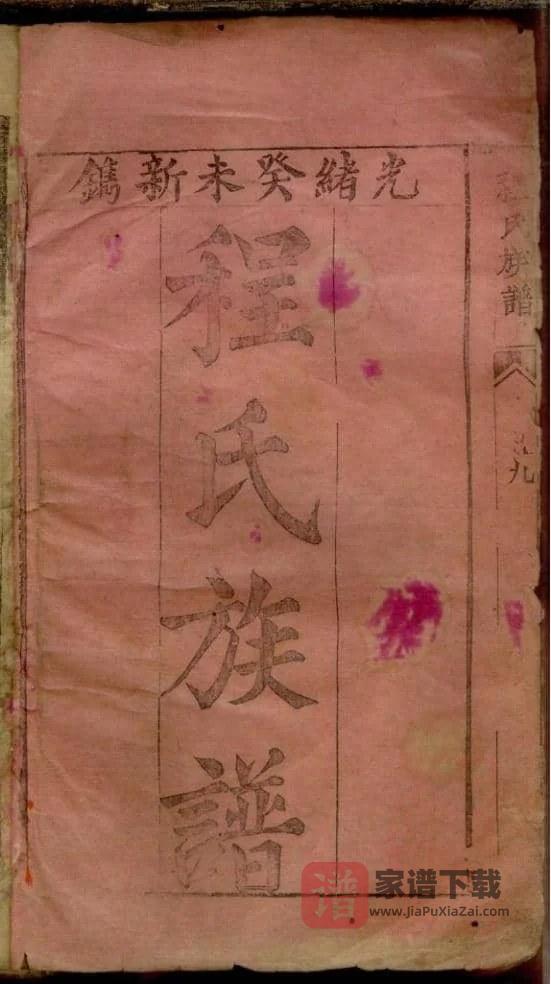 光緒癸未新鐫
程氏族譜
氏族譜
九
谱 家谱下载
www.JiaPuXiaZai.com